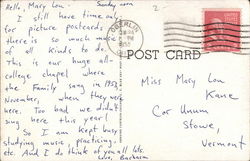 Hello, Mary Lou - Sunday noon
I still have time out
for picture postcards;
there is so much
of all kinds to do.
This is our huge all-
college chapel where
the Family sang this
November, when they were
here. Too bad we didn't
sing here this year!
So I am kept busy
studying music, practicing,
etc. And I do think of you all lots.
Love, Barbara
2-
OBERLIN
1955
POST CARD
Miss Mary Lou
Kane
Cor Unum
Stowe,
Vermont